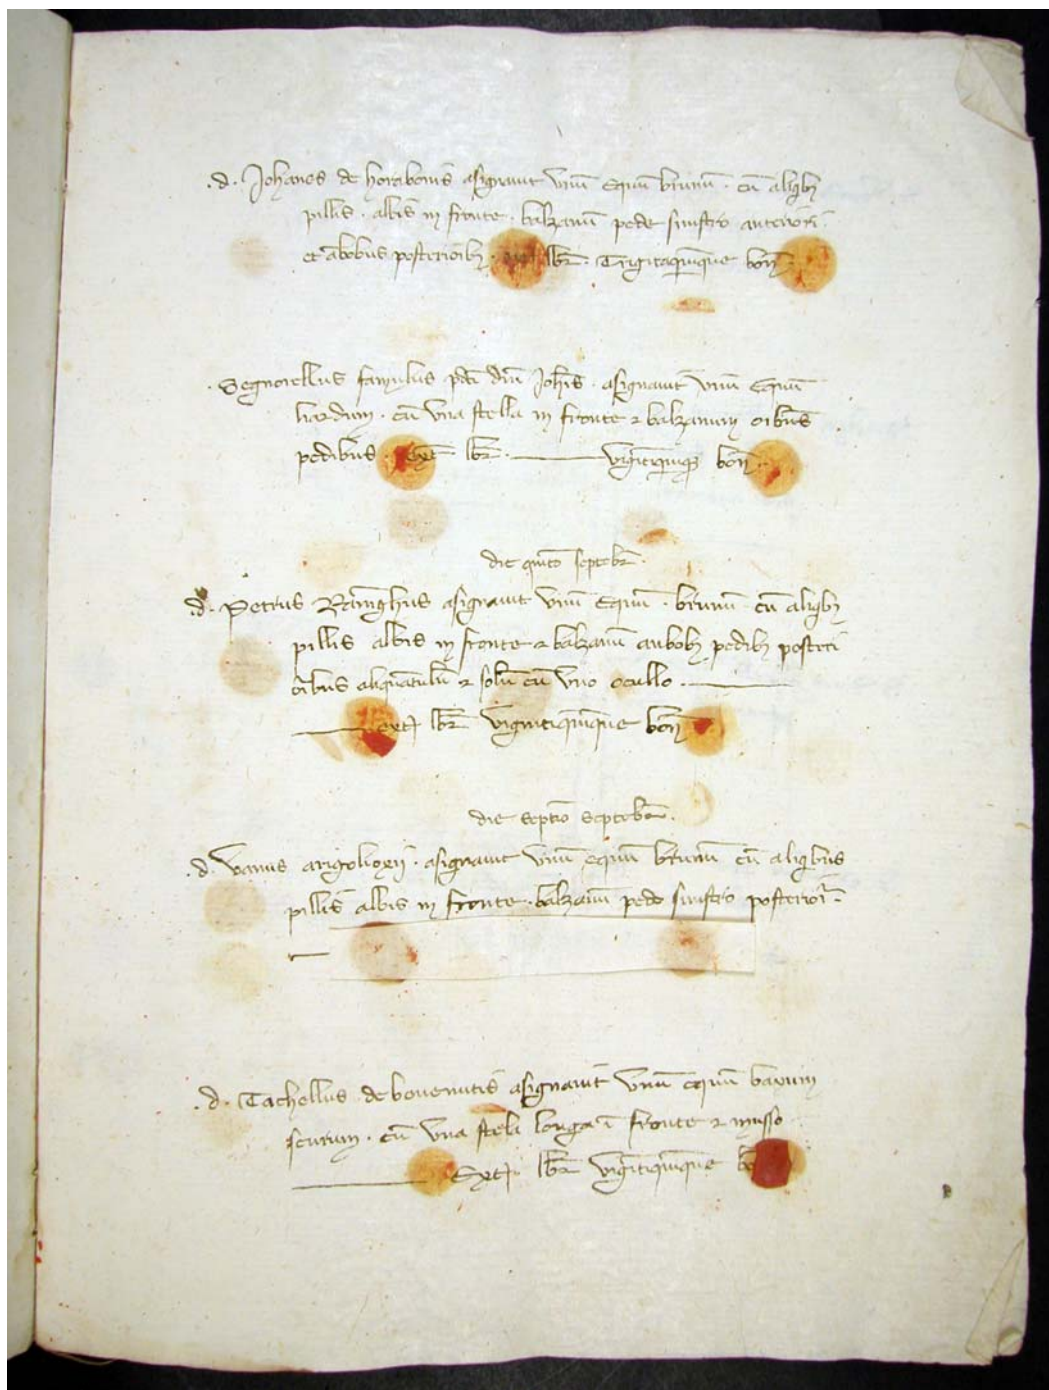 .d. Johanes de horabonis asignauit vnū equū brunū . cū aliqbȝ
pillis . albis in fronte . balzanū pede sinistro anteriori .
et abobus posterioribȝ . lbr̄ . Trigitaqinque bon̄
. Segnorellus famulus pd̄ci dn̄i Joh̄is . asignauit vnū equū
liardum . cū vna stella in fronte ⁊ balzanum oībus
pedibus . ext lbr̄ . vigītiqinqȝ bon̄ .
die quīto septēbr̄ .
.d. Petrus asignauit vnū equū . brunū . cū aliqbȝ
pillis albis in fronte ⁊ balzanū anbobȝ pedibȝ posteri
oribus aliquātulū ⁊ solū cū vno ocullo .
ext lbr̄ viginitiqinque bon̄
die septīo septēbr̄ .
.d. asignauit vnū equū brunū cū aliqibus
pillis albis in fronte . balzanū pede sinistro posteriori .
.d. Tachellus de bonenutis asignauit vnū equū baxum
scurum . cū vna stela longa ī fronte ⁊ musso
Ext lbr̄ vigītiqinque